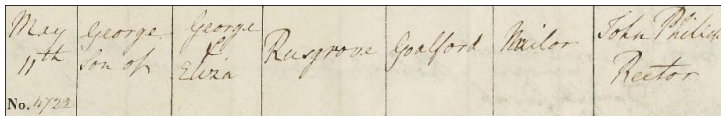 May
11th
No. 4722
George
Son of
George
&
Eliza
Rusgrove
Goalford
Nailor
John Philip
Rector